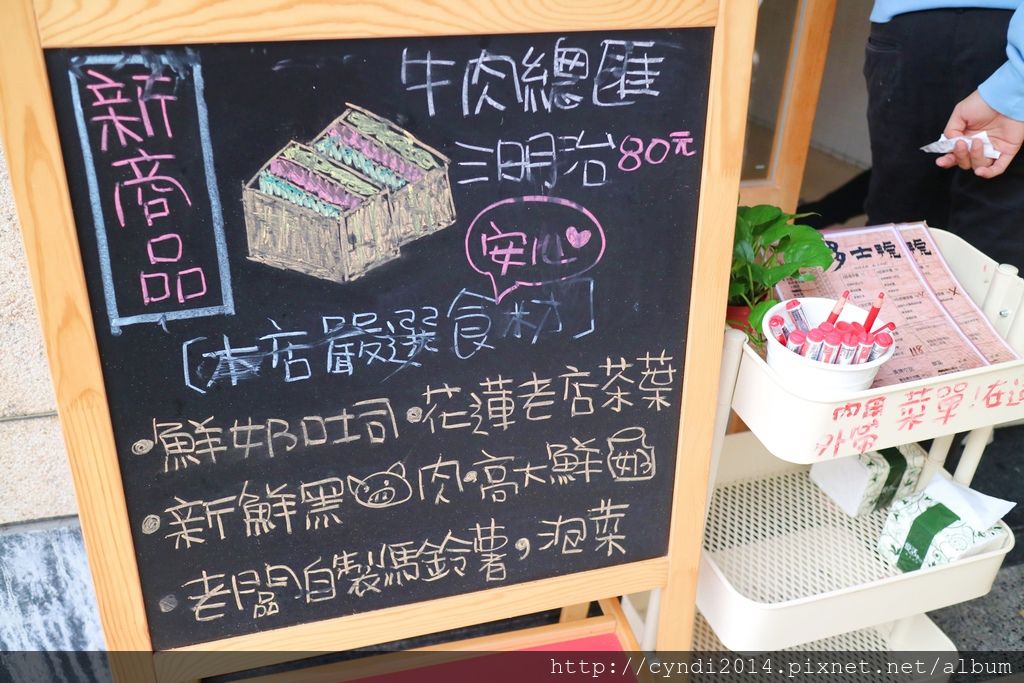 新商品
牛肉總匯
三明治80元
安心
[本店嚴選食材]
•鮮奶吐司•花蓮老店茶葉
•新鮮黑肉•高大鮮奶
•老闆自製馬鈴薯,泡菜
多士號
內用
外帶
菜單!在這
http://cyndi2014.pixnet.net/album